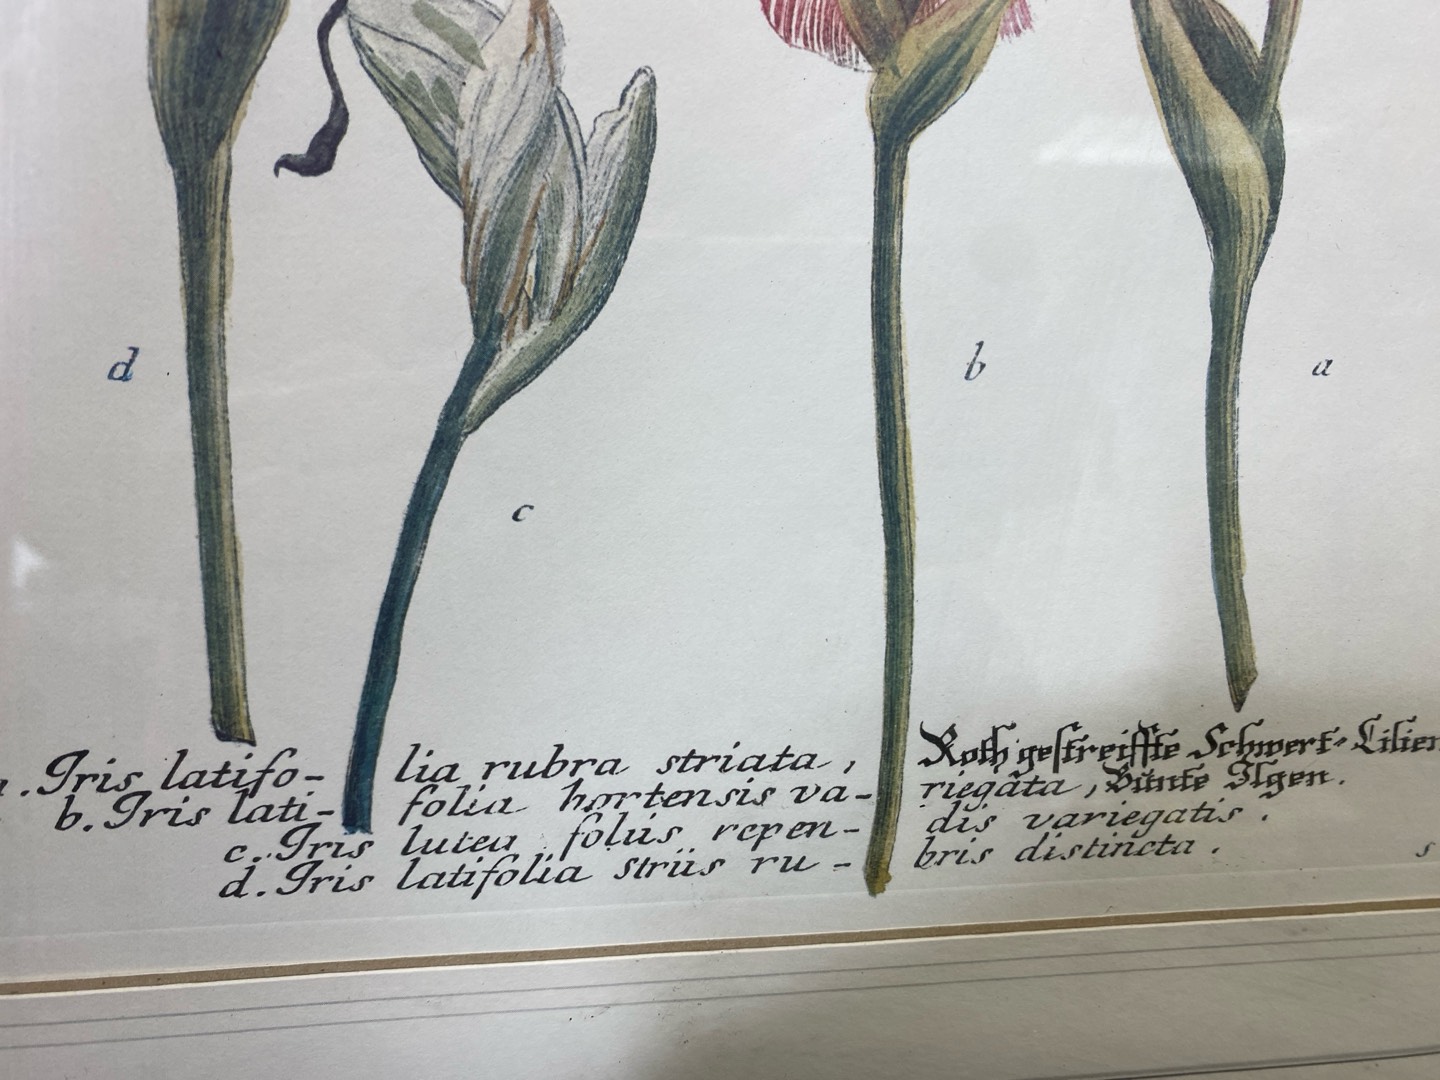 d
b
a
c
a. Iris latifo- lia rubra striata, Roth gestreiffte Schwert-Lilien
b. Iris lati- folia hortensis va- riegata, Bunte Ilgen.
c. Iris lutea foliis repen- dis variegatis.
d. Iris latifolia striis ru- bris distincta. s